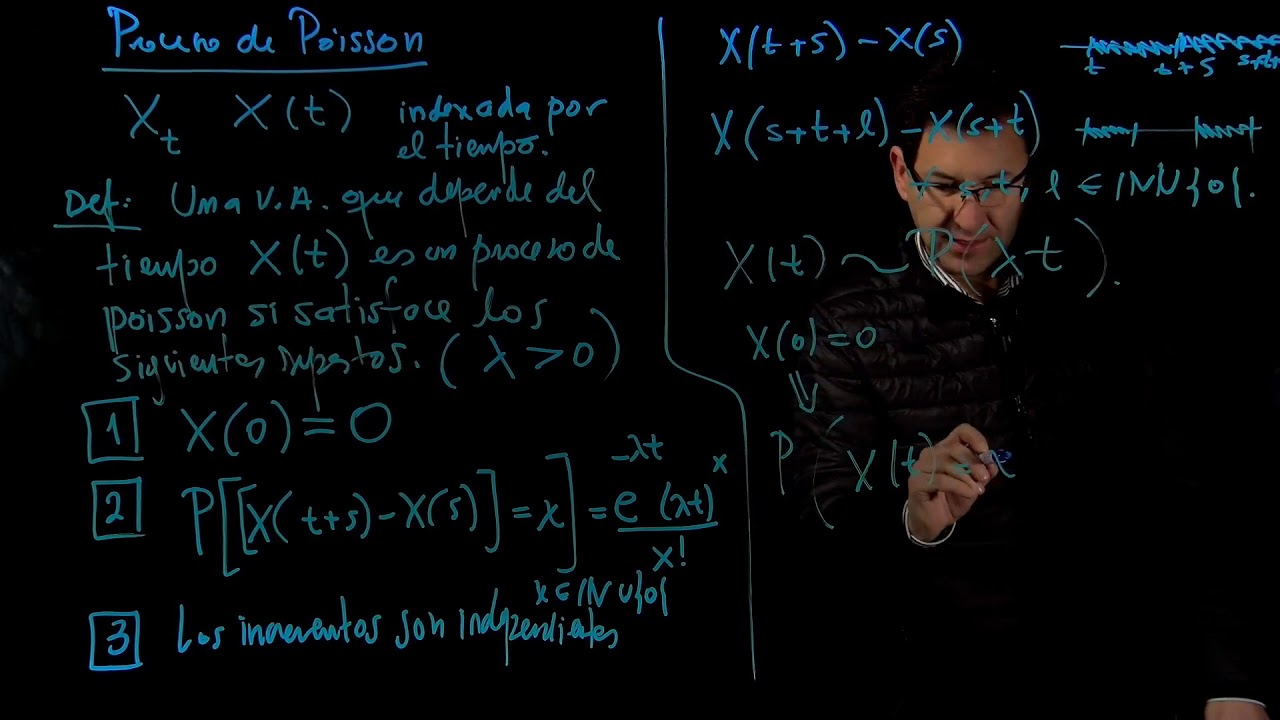 Proceso de Poisson
X_t X(t) indexada por
el tiempo.
Def: Una V.A. que depende del
tiempo X(t) es un proceso de
poisson si satisface los
siguientes supestos. (λ > 0)
1 X(0) = 0
2 P[[X(t+s) - X(s)] = x] = e^{-λt} (λt)^x / x!
x ∈ IN ∪ {0}
3 Los incrementos son independientes
X(t+s) - X(s)
t t+s
X(s+t+l) - X(s+t)
s,t, l ∈ IN ∪ {0}.
X(t) ~ P(λt).
X(0) = 0
⇓
P(X(t) =